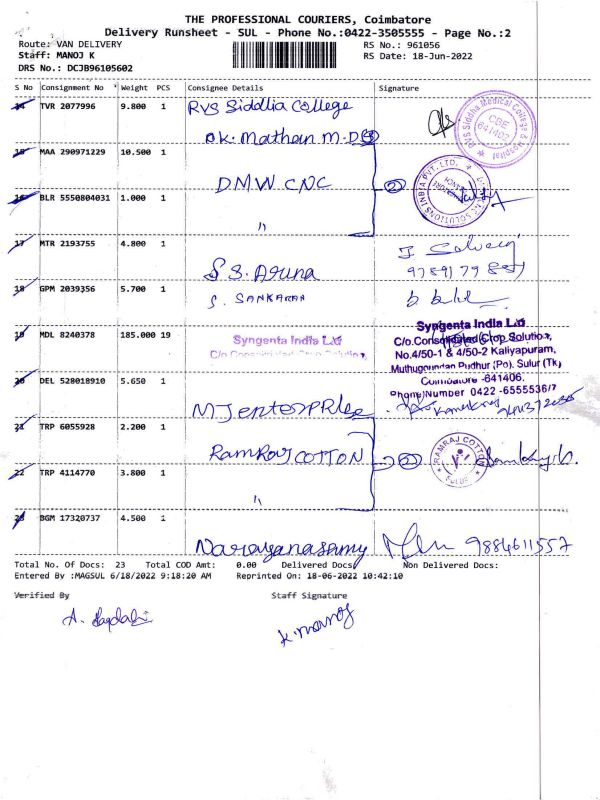 THE PROFESSIONAL COURIERS, Coimbatore
Delivery Runsheet - SUL - Phone No.:0422-3505555 - Page No.:2
Route: VAN DELIVERY
RS No.: 961056
Staff: MANOJ K
RS Date: 18-Jun-2022
DRS No.: DCJB96105602
S No Consignment No Weight PCS Consignee Details Signature
14 TVR 2077996 9.800 1 RVS Siddha College
DK. Mathan M.D
RVS Siddha Medical College & Hospital
CBE
641402
15 MAA 290971229 10.500 1
DMW CNC 2
SOLUTIONS INDIA PVT. LTD.
16 BLR 5550804031 1.000 1
"
17 MTR 2193755 4.800 1
S.S. Aruna
18 GPM 2039356 5.700 1
S. SANKARAN
19 MDL 8240378 185.000 19 Syngenta India Ltd
Syngenta India Ltd
C/o.Consolidated Crop Solution,
C/o.Consolidated Crop Solution,
No.4/50-1 & 4/50-2 Kaliyapuram,
Muthugoundan Pudhur (Po). Sulur (Tk)
Coimbatore -641406.
Phone Number 0422 -6555536/7
20 DEL 528018910 5.650 1
MJ enterprises
21 TRP 6055928 2.200 1
Ramraj COTTON 2
RAMRAJ COTTON
SULUR
22 TRP 4114770 3.800 1
"
23 BGM 17320737 4.500 1
Narayanasamy 9884611557
Total No. Of Docs: 23 Total COD Amt: 0.00 Delivered Docs: Non Delivered Docs:
Entered By :MAGSUL 6/18/2022 9:18:20 AM Reprinted On: 18-06-2022 10:42:10
Verified By Staff Signature
K. Manoj